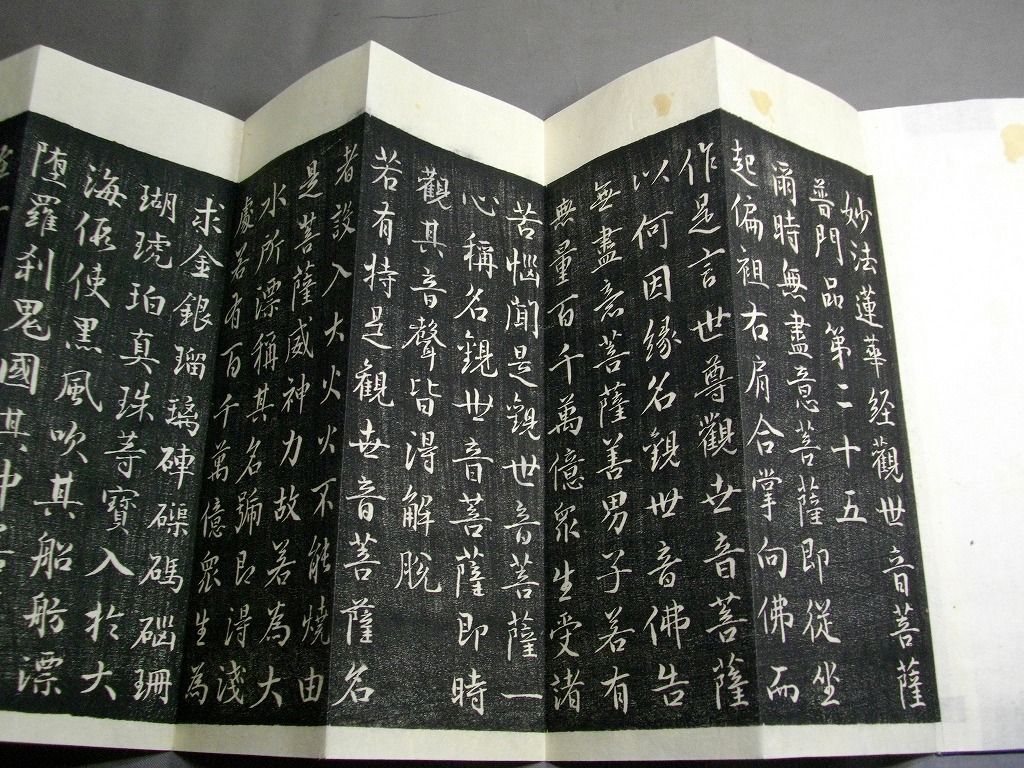 妙法蓮華経觀世音菩薩
普門品第二十五
爾時無盡意菩薩即從坐
起偏袒右肩合掌向佛而
作是言世尊觀世音菩薩
以何因緣名觀世音佛告
無盡意菩薩善男子若有
無量百千萬億眾生受諸
苦惱聞是觀世音菩薩一
心稱名觀世音菩薩即時
觀其音聲皆得解脫
若有持是觀世音菩薩名
者設入大火火不能燒由
是菩薩威神力故若為大
水所漂稱其名號即得淺
處若有百千萬億眾生為
求金銀瑠璃硨磲碼碯珊
瑚琥珀真珠等寶入於大
海假使黑風吹其船舫漂
堕羅刹鬼國其中